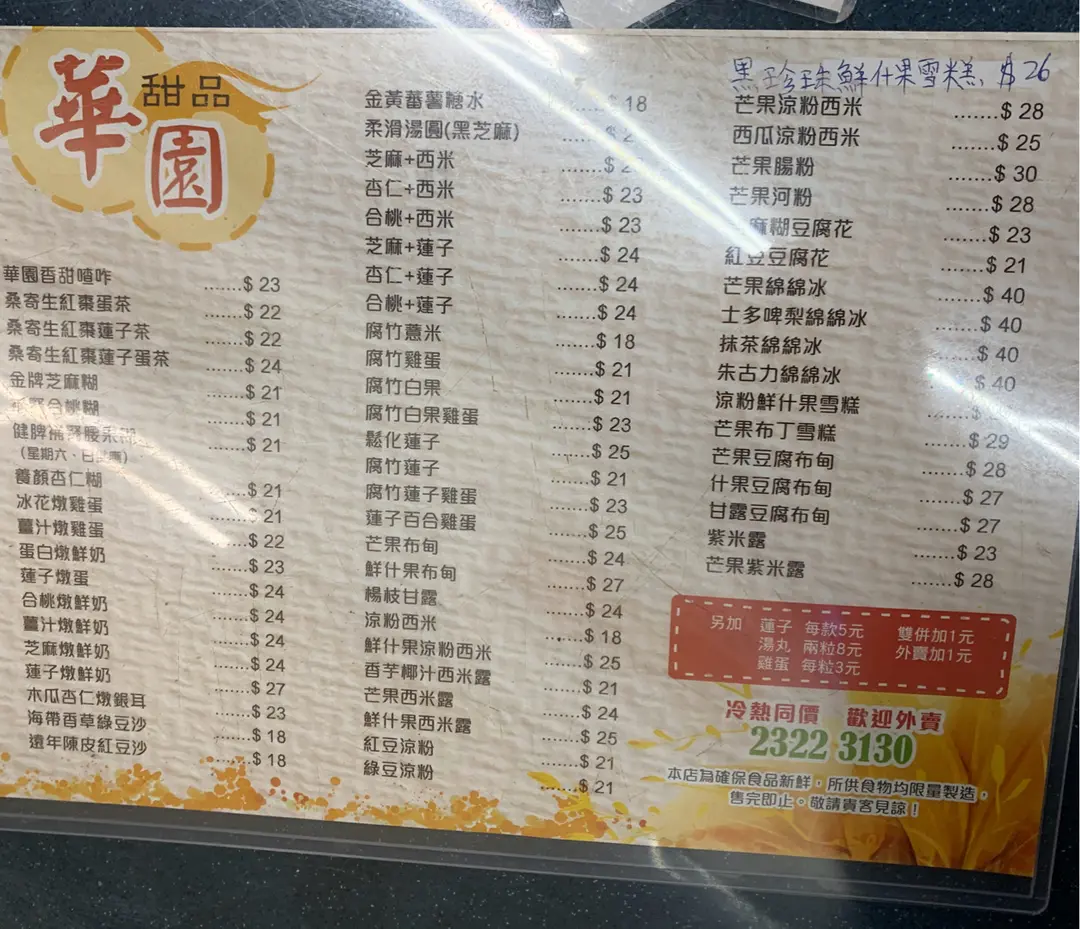 華園
甜品
華園香甜喳咋 ……$ 23
桑寄生紅棗蛋茶 ……$ 22
桑寄生紅棗蓮子茶 ……$ 22
桑寄生紅棗蓮子蛋茶 ……$ 24
金牌芝麻糊 ……$ 21
合桃糊 ……$ 21
健脾補腎腰果糊 ……$ 21
(星期六、日
養顏杏仁糊 ……$ 21
冰花燉雞蛋 ……$ 21
薑汁燉雞蛋 ……$ 22
蛋白燉鮮奶 ……$ 23
蓮子燉蛋 ……$ 24
合桃燉鮮奶 ……$ 24
薑汁燉鮮奶 ……$ 24
芝麻燉鮮奶 ……$ 24
蓮子燉鮮奶 ……$ 27
木瓜杏仁燉銀耳 ……$ 23
海帶香草綠豆沙 ……$ 18
遠年陳皮紅豆沙 ……$ 18
金黃蕃薯糖水 ……$ 18
柔滑湯圓(黑芝麻) ……$
芝麻+西米 ……$
杏仁+西米 ……$ 23
合桃+西米 ……$ 23
芝麻+蓮子 ……$ 24
杏仁+蓮子 ……$ 24
合桃+蓮子 ……$ 24
腐竹薏米 ……$ 18
腐竹雞蛋 ……$ 21
腐竹白果 ……$ 21
腐竹白果雞蛋 ……$ 23
鬆化蓮子 ……$ 25
腐竹蓮子 ……$ 21
腐竹蓮子雞蛋 ……$ 23
蓮子百合雞蛋 ……$ 25
芒果布甸 ……$ 24
鮮什果布甸 ……$ 27
楊枝甘露 ……$ 24
涼粉西米 ……$ 18
鮮什果涼粉西米 ……$ 25
香芋椰汁西米露 ……$ 21
芒果西米露 ……$ 24
鮮什果西米露 ……$ 25
紅豆涼粉 ……$ 21
綠豆涼粉 ……$ 21
黑珍珠鮮什果雪糕 $26
芒果涼粉西米 ……$ 28
西瓜涼粉西米 ……$ 25
芒果腸粉 ……$ 30
芒果河粉 ……$ 28
麻糊豆腐花 ……$ 23
紅豆豆腐花 ……$ 21
芒果綿綿冰 ……$ 40
士多啤梨綿綿冰 ……$ 40
抹茶綿綿冰 ……$ 40
朱古力綿綿冰 ……$ 40
涼粉鮮什果雪糕 ……$
芒果布丁雪糕 ……$ 29
芒果豆腐布甸 ……$ 28
什果豆腐布甸 ……$ 27
甘露豆腐布甸 ……$ 27
紫米露 ……$ 23
芒果紫米露 ……$ 28
另加 蓮子 每款5元 雙併加1元
湯丸 兩粒8元 外賣加1元
雞蛋 每粒3元
冷熱同價 歡迎外賣
2322 3130
本店為確保食品新鮮，所供食物均限量製造，
售完即止。敬請貴客見諒！